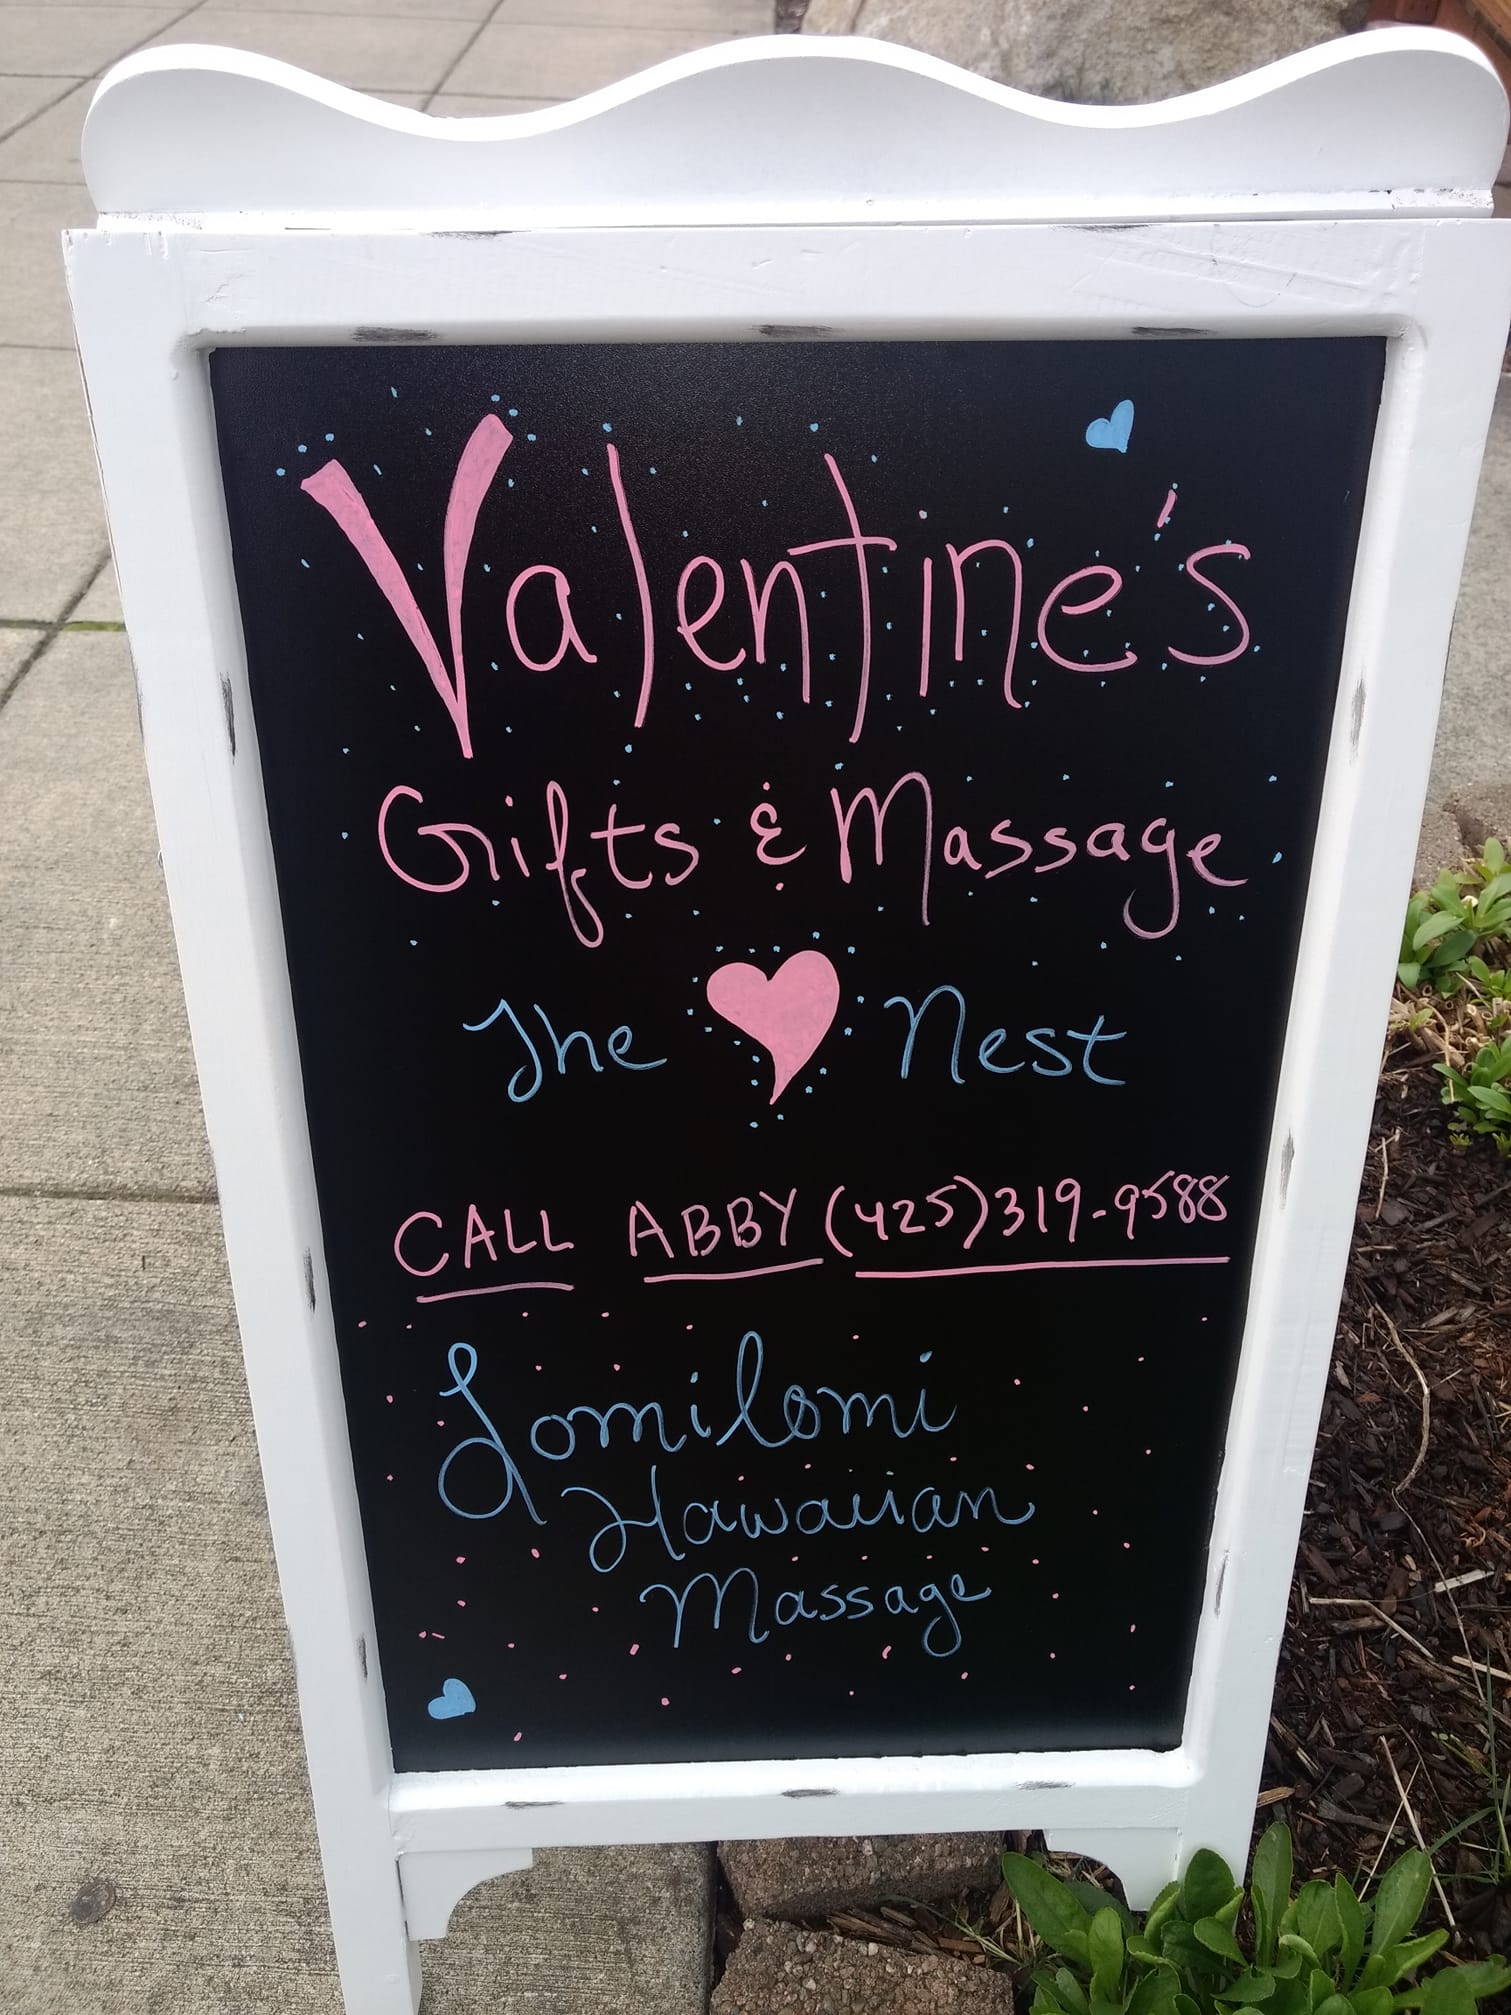 Valentine's
Gifts & Massage
The Nest
CALL ABBY (425)319-9588
Lomilomi
Hawaiian
Massage